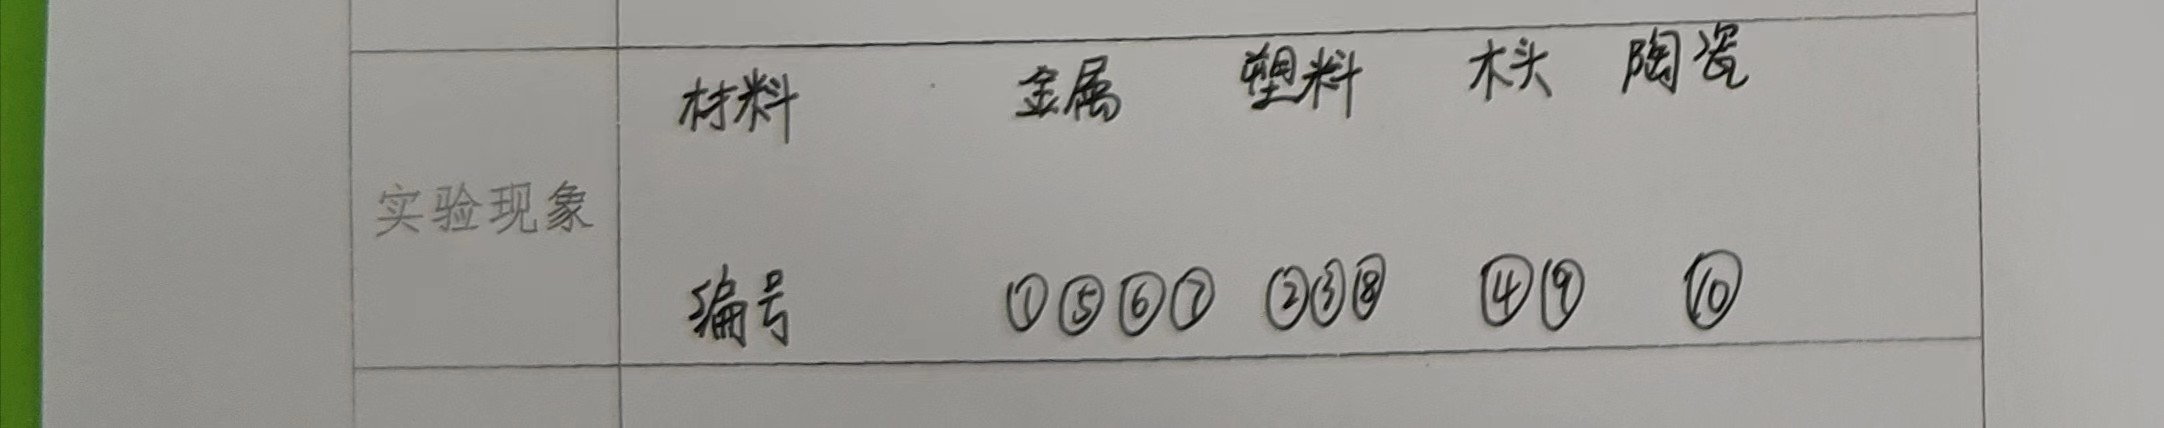 材料 金属 塑料 木头 陶瓷
实验现象
编号 ①⑤⑥⑦ ②③⑧ ④⑨ ⑩